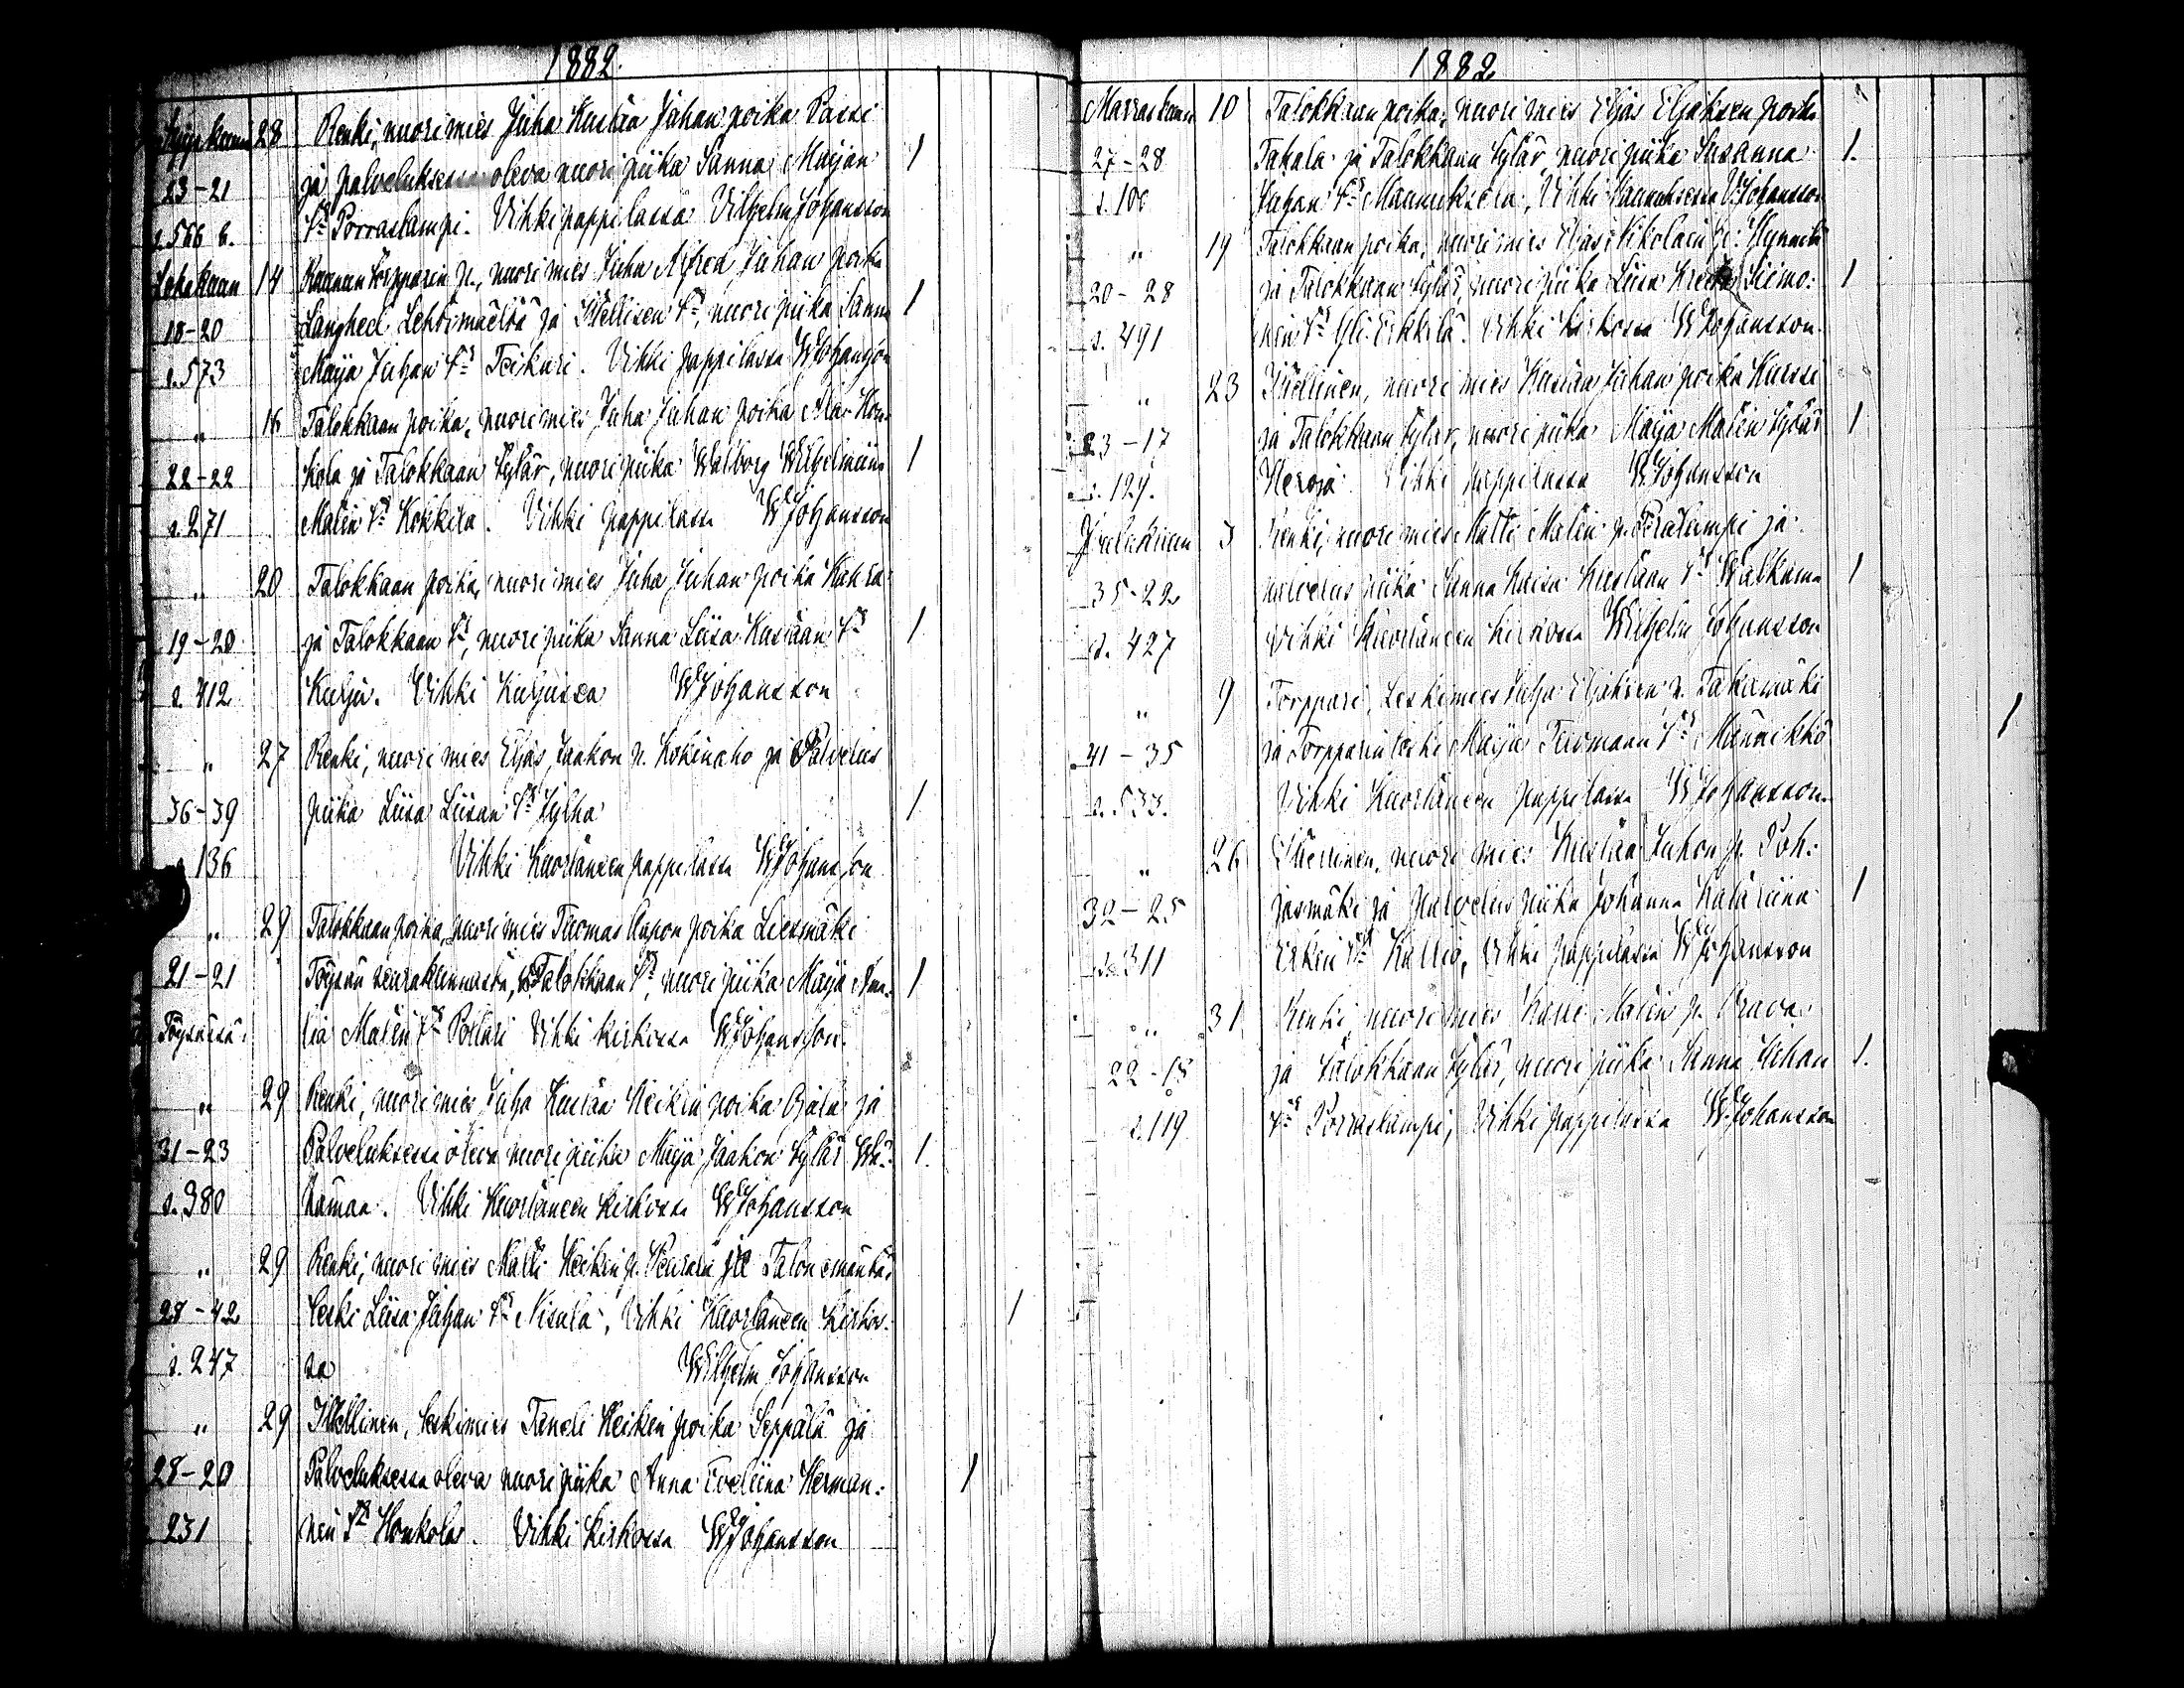 1882.
Syyskuun 28 Renki, nuori mies Juha Kustaa Juhan poika Passi
23-21 ja palveluksessa oleva nuori piika Sanna Maijan 1
s. 566 b. tr Porraslampi. Vihki pappilassa Vilhelm Johansson
Lokakuun 14 Torpparin p., nuori mies Juha Alfred Juhan poika
18-20 Langhed Lehtimäeltä ja Itsellisen tr, nuori piika Sanna 1
s. 573 Maija Juhan tr Teikari. Vihki pappilassa WJohansson
" 16 Talokkaan poika, nuori mies Juha Juhan poika Ala-Hon-
22-22 kola ja Talokkaan tytär, nuori piika Walborg Wilhelmiina 1
s. 271 Matin tr Kokkila. Vihki pappilassa WJohansson
" 20 Talokkaan poika, nuori mies Juha Juhan poika
19-20 ja Talokkaan tr, nuori piika Sanna Liisa Kustaan tr 1
s. 412 Kulju. Vihki Kuljussa WJohansson
" 27 Renki, nuori mies Eljas Jaakon p. Kokinaho ja Palvelus
36-39 piika Liisa Liisan tr Jylhä 1
s. 136 Vihki Kuortaneen pappilassa WJohansson
" 29 Talokkaan poika, nuori mies Tuomas Aapon poika Liesmäki
21-21 Töysän seurakunnasta, ja Talokkaan tr, nuori piika Maija Ama- 1
Töysässä. lia Matin tr Potkari Vihki kirkossa WJohansson.
" 29 Renki, nuori mies Juha Kustaa Heikin poika Ojala ja
31-23 Palveluksessa oleva nuori piika Maija Jaakon tytär 1.
s. 380 Vihki Kuortaneen kirkossa WJohansson
" 29 Renki, nuori mies Matti Heikin p. Peurala ja Talon emäntä,
28-42 leski Liisa Juhan tr Nisula, Vihki Kuortaneen kirkos- 1
s. 247 sa Wilhelm Johansson
" 29 Itsellinen, leskimies Taneli Heikin poika Seppälä ja
28-20 Palveluksessa oleva nuori piika Anna Eveliina Herman- 1
231 nin tr Honkola. Vihki kirkossa WJohansson
1882
Marraskuun 10 Talokkaan poika, nuori mies Eljas Eljaksen poika
27-28 Takala ja Talokkaan tytär, nuori piika Susanna 1.
s. 100 Juhan tr Mannuksela, Vihki WJohansson
" 19 Talokkaan poika, nuori mies Eljas Nikolain p.
20-28 ja Talokkaan tytär, nuori piika Liisa Kreeta Siimo- 1
s. 491 nin tr Yli-Erkkilä. Vihki kirkossa WJohansson.
" 23 Itsellinen, nuori mies Kustaa Juhan poika Kurssi
23-17 ja Talokkaan tytär, nuori piika Maija Matin tytär 1
s. 124. Heroja. Vihki pappilassa WJohansson
Joulukuun 3 Renki, nuori mies Matti Matin p. ja
35-22 palvelus piika Sanna Kaisa Kustaan tr Walkama 1
s. 427 Vihki Kuortaneen kirkossa Wilhelm Johansson
" 9 Torppari, Leskimies Juha Eljaksen p. Takamäki
41-35 ja Torpparin leski Maija Tuomaan tr Männikkö 1
s. 533. Vihki Kuortaneen pappilassa WJohansson.
" 26 Itsellinen, nuori mies Kustaa Juhon p. Poh-
32-25 jasmäki ja palvelus piika Johanna Katariina 1
s. 311 Erkin tr Kallio, Vihki pappilassa WJohansson
" 31 Renki, nuori mies Kalle Matin p. Orava
22-18 ja Talokkaan tytär, nuori piika Sanna Juhan 1.
s. 119 tr Porraslampi, Vihki pappilassa WJohansson